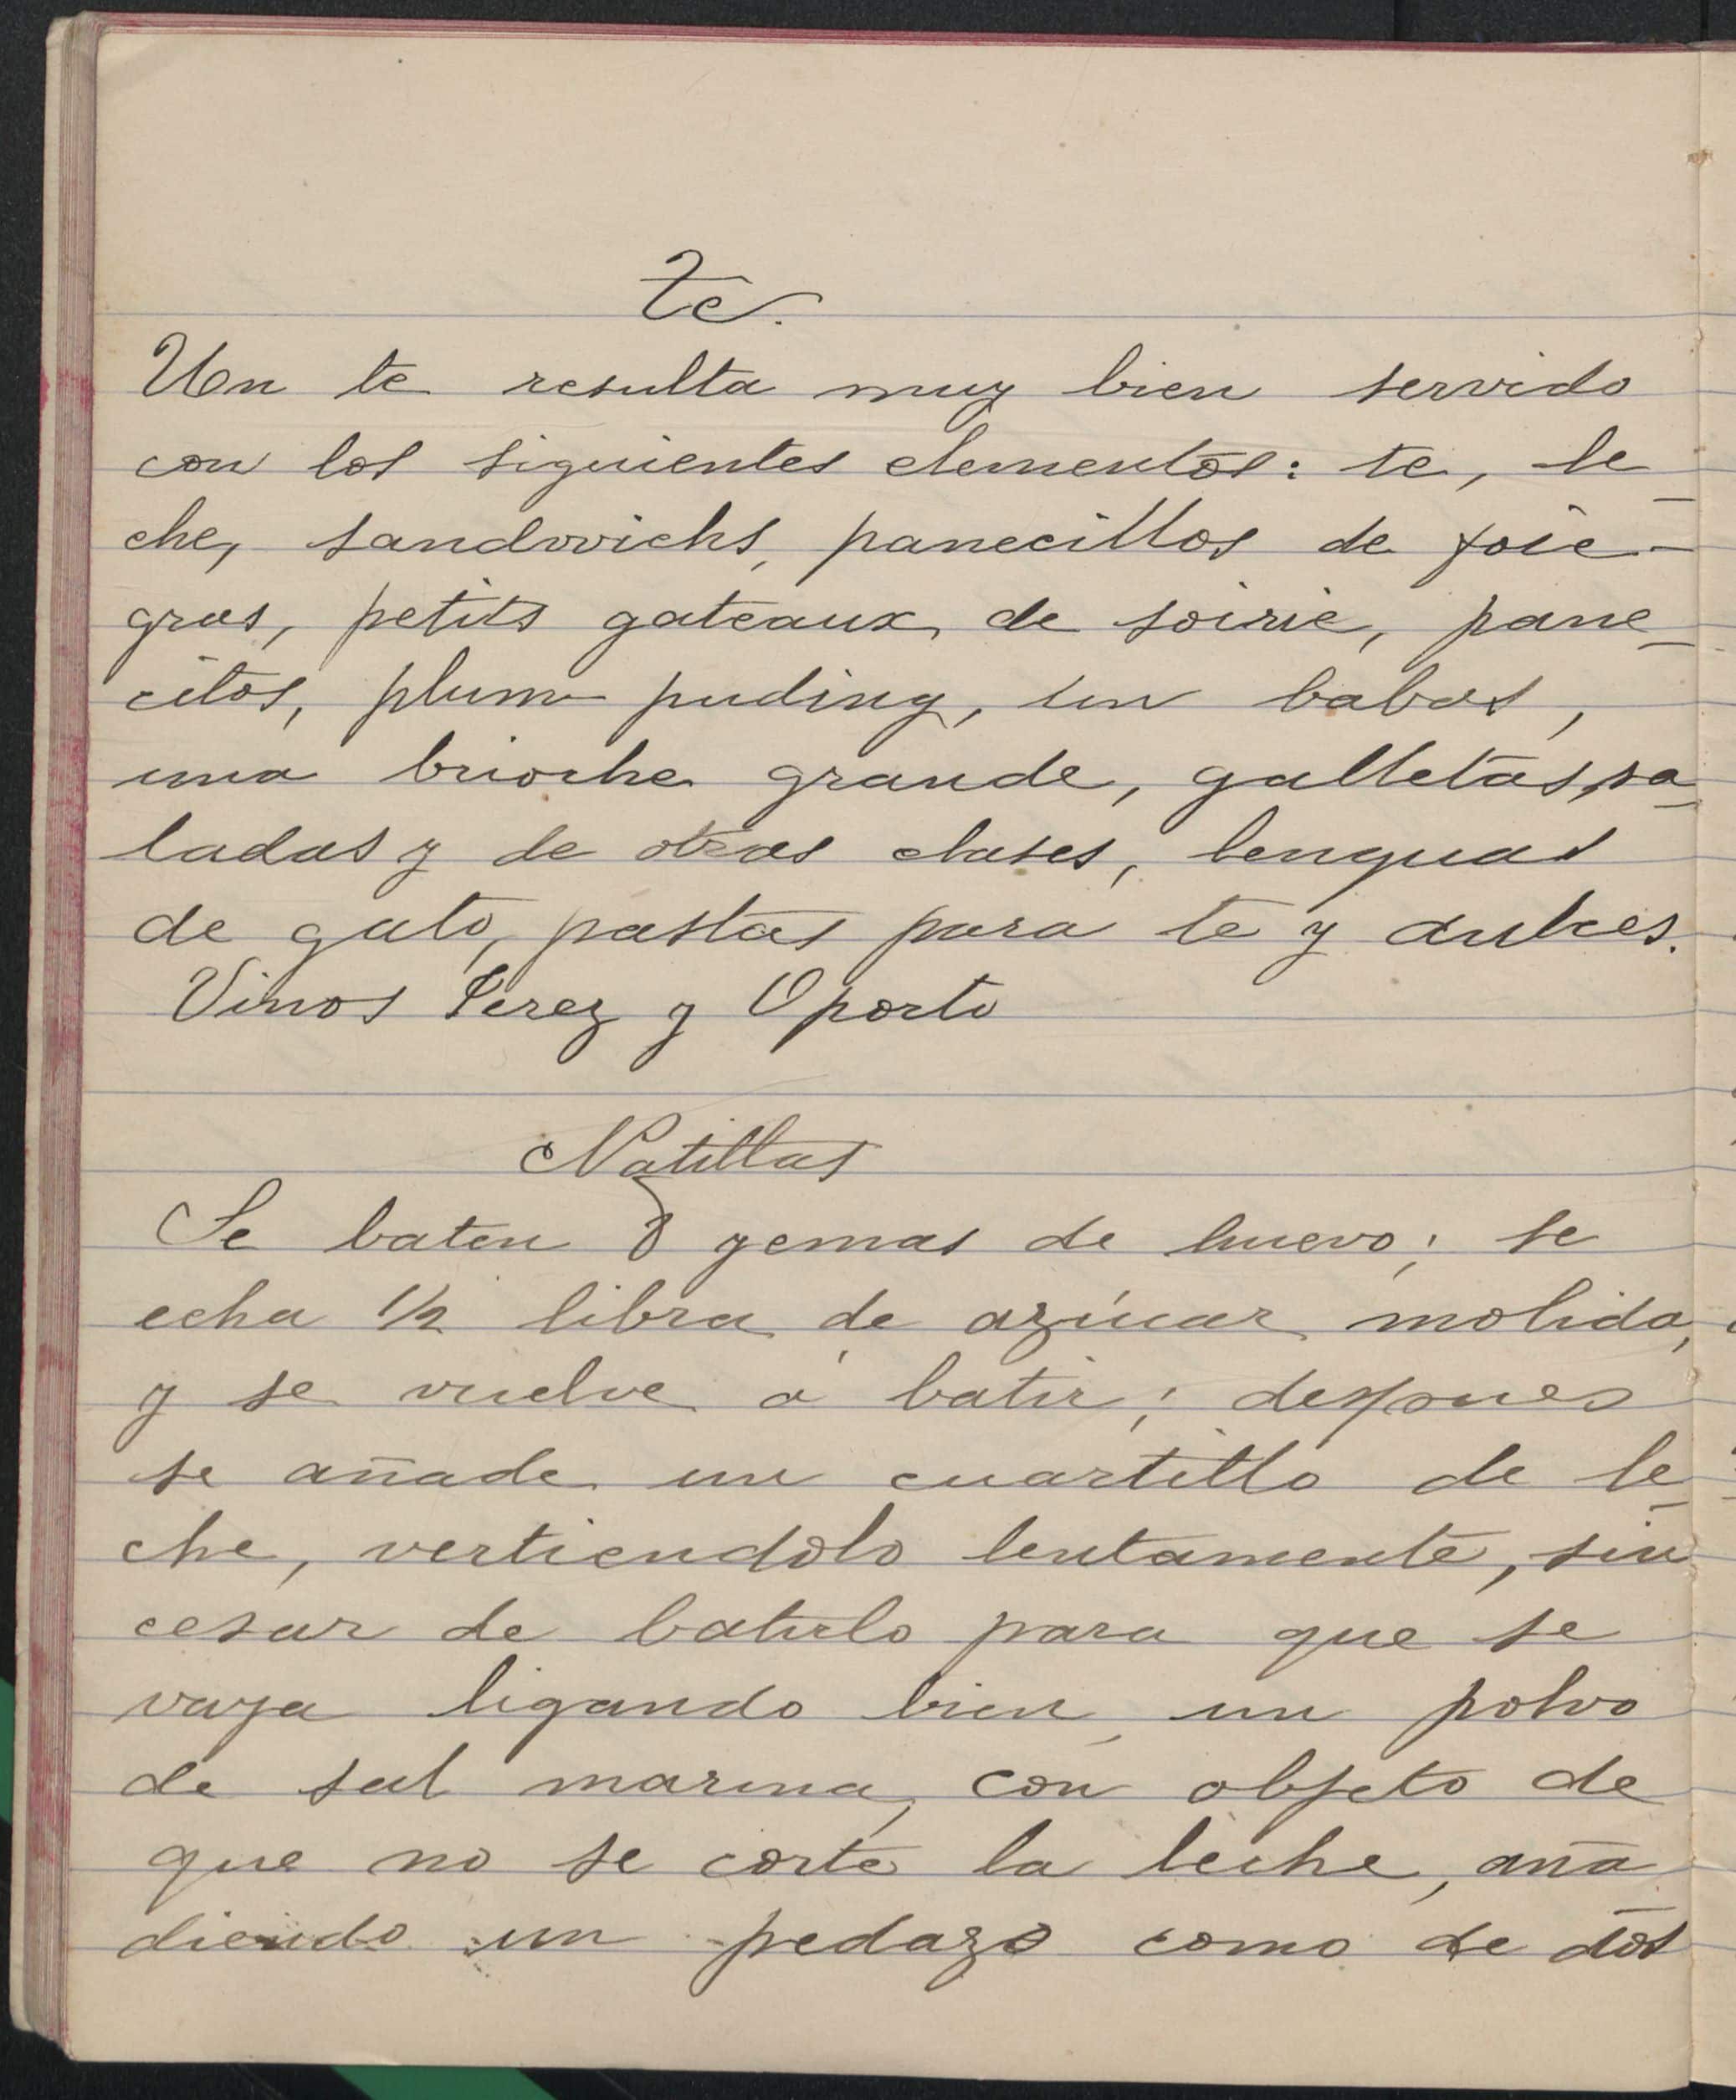 Te.
Un te resulta muy bien servido
con los siguientes elementos: te, le_
che, sandwichs, panecillos de foie-
gras, petits gateaux, de soirie, pane_
citos, plum puding, un babas,
una brioche grande, galletas, sa_
ladas y de otras clases, lenguas
de gato, pastas para te y dulces.
Vinos Jerez y Oporto
Natillas
Se baten 8 yemas de huevo; se
echa 1/2 libra de azúcar molida,
y se vuelve á batir; despues
se añade un cuartillo de le_
che, vertiendolo lentamente, sin
cesar de batirlo para que se
vaya ligando bien, un polvo
de sal marina, con objeto de
que no se corte la leche, aña_
diendo un pedazo como de dos